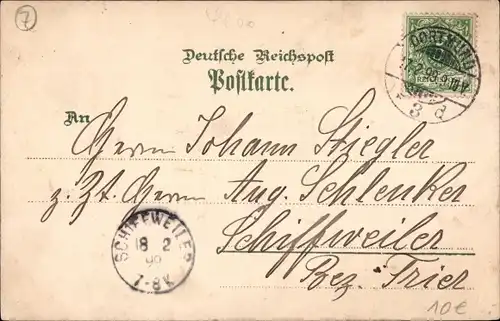 7
Deutsche Reichspost
Postkarte.
DORTMUND
3 a
An
Herrn Johann Stiegler
z. Zt. Herrn Aug. Schlenker
Schiffweiler
Bez. Trier
SCHIFFWEILER
18 2
99
7-8V
10€